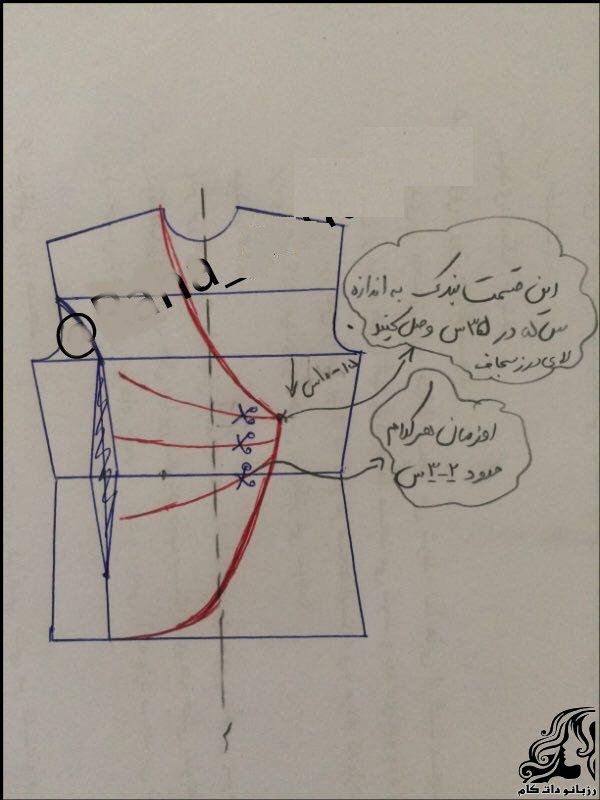 این قسمت بندک به اندازه
س که در ۳۵س وصل کنید.
لای درز سجاف
۱۰-۱۵س
اوزمان هر کدام
حدود ۲-۳س
رزبانو دات کام